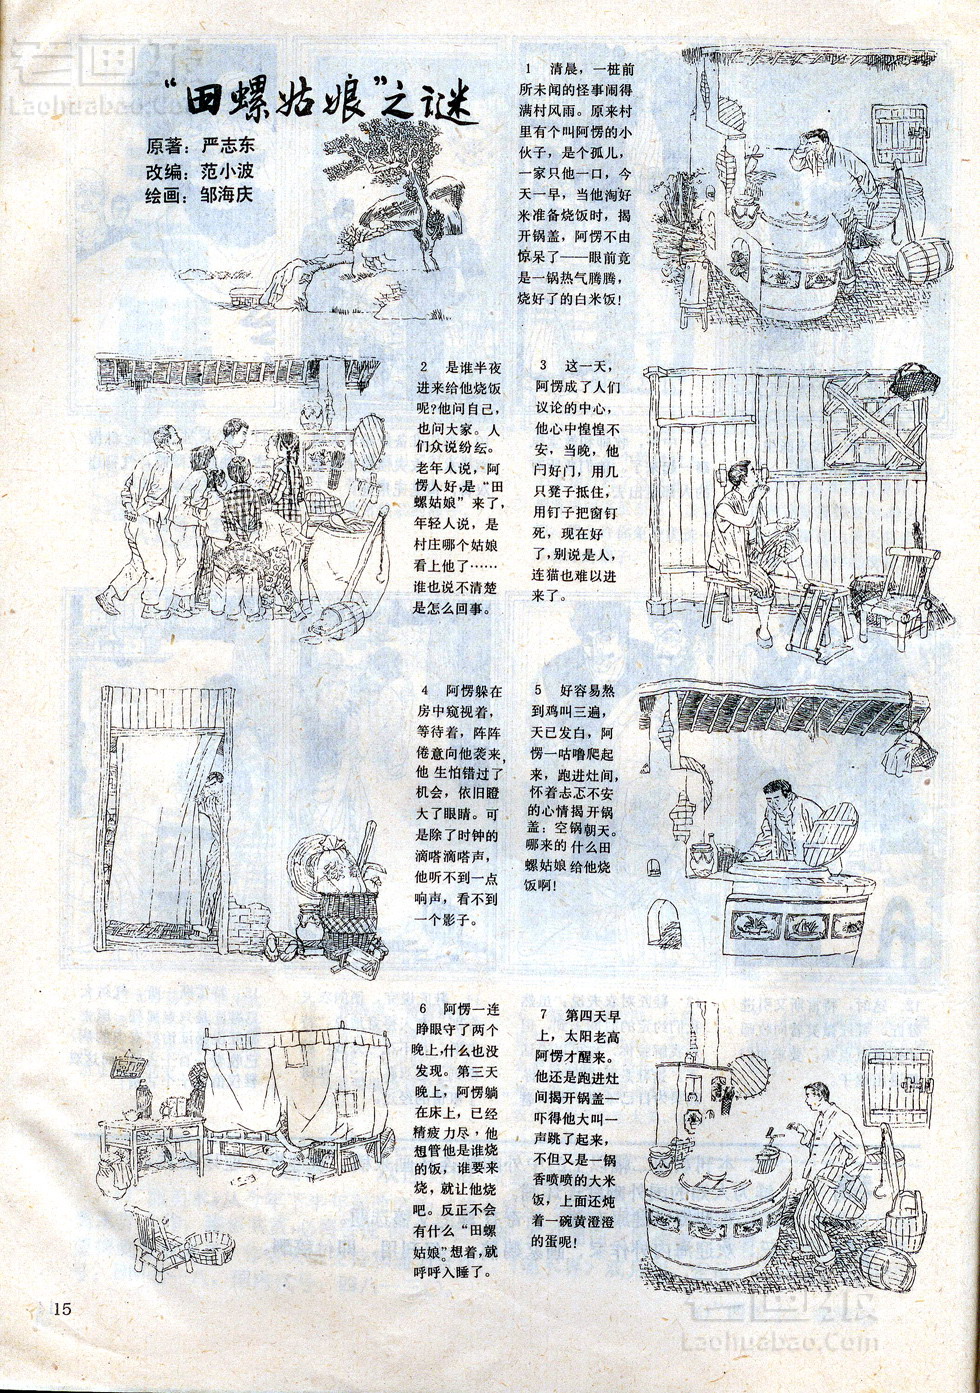 老画报
Laohuabao.Com
“田螺姑娘”之谜
原著：严志东
改编：范小波
绘画：邹海庆
1 清晨，一桩前
所未闻的怪事闹得
满村风雨。原来村
里有个叫阿愣的小
伙子，是个孤儿，
一家只他一口，今
天一早，当他淘好
米准备烧饭时，揭
开锅盖，阿愣不由
惊呆了——眼前竟
是一锅热气腾腾，
烧好了的白米饭！
2 是谁半夜
进来给他烧饭
呢？他问自己，
也问大家。人
们众说纷纭。
老年人说，阿
愣人好，是“田
螺姑娘”来了，
年轻人说，是
村庄哪个姑娘
看上他了……
谁也说不清楚
是怎么回事。
3 这一天，
阿愣成了人们
议论的中心，
他心中惶惶不
安，当晚，他
闩好门，用几
只凳子抵住，
用钉子把窗钉
死，现在好
了，别说是人，
连猫也难以进
来了。
4 阿愣躲在
房中窥视着，
等待着，阵阵
倦意向他袭来，
他生怕错过了
机会，依旧瞪
大了眼睛。可
是除了时钟的
滴嗒滴嗒声，
他听不到一点
响声，看不到
一个影子。
5 好容易熬
到鸡叫三遍，
天已发白，阿
愣一咕噜爬起
来，跑进灶间，
怀着忐忑不安
的心情揭开锅
盖：空锅朝天。
哪来的什么田
螺姑娘给他烧
饭啊！
6 阿愣一连
睁眼守了两个
晚上，什么也没
发现。第三天
晚上，阿愣躺
在床上，已经
精疲力尽，他
想管他是谁烧
的饭，谁要来
烧，就让他烧
吧。反正不会
有什么“田螺
姑娘”。想着，就
呼呼入睡了。
7 第四天早
上，太阳老高
阿愣才醒来。
他还是跑进灶
间揭开锅盖—
吓得他大叫一
声跳了起来，
不但又是一锅
香喷喷的大米
饭，上面还炖
着一碗黄澄澄
的蛋呢！
15
老画报
Laohuabao.Com